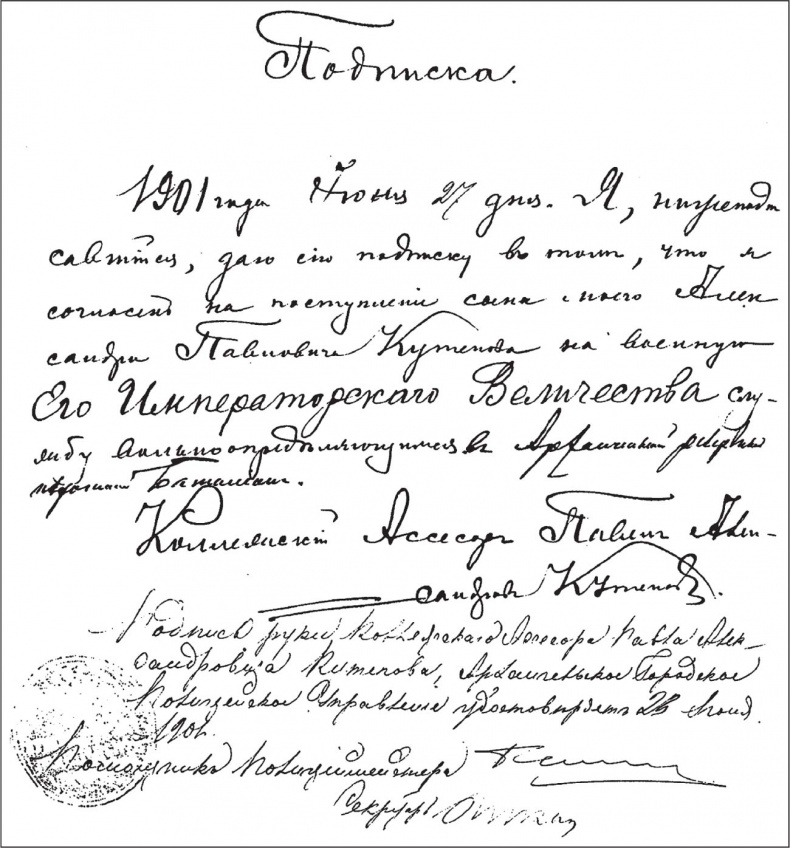 Подписка.
1901 года Iюня 27 дня. Я, нижеподпи
савшiйся, даю сiю подписку въ томъ, что я
согласенъ на поступленiе сына моего Алек
сандра Павловича Кутепова на военную
Его Императорскаго Величества слу-
жбу вольноопредѣляющимся въ Архангельскiй резервный
пѣхотный Баталiонъ.
Коллежскiй Ассесоръ Павелъ Алек-
сандровъ Кутеповъ.
Подпись руки Коллежскаго Ассесора Павла Алек-
сандровича Кутепова, Архангельское Городское
Полицейское Управленiе удостовѣряетъ 28 Iюня
1901.
Помощникъ Полицiймейстера
Секретарь